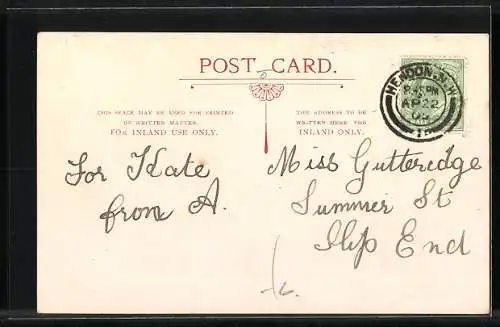 POST CARD.
THIS SPACE MAY BE USED FOR PRINTED
OR WRITTEN MATTER.
FOR INLAND USE ONLY.
THE ADDRESS TO BE
WRITTEN HERE FOR
INLAND ONLY.
HENDON. N.W.
PM
AP 22
For Kate
from A.
Miss Gutteridge
Summer St
Slip End